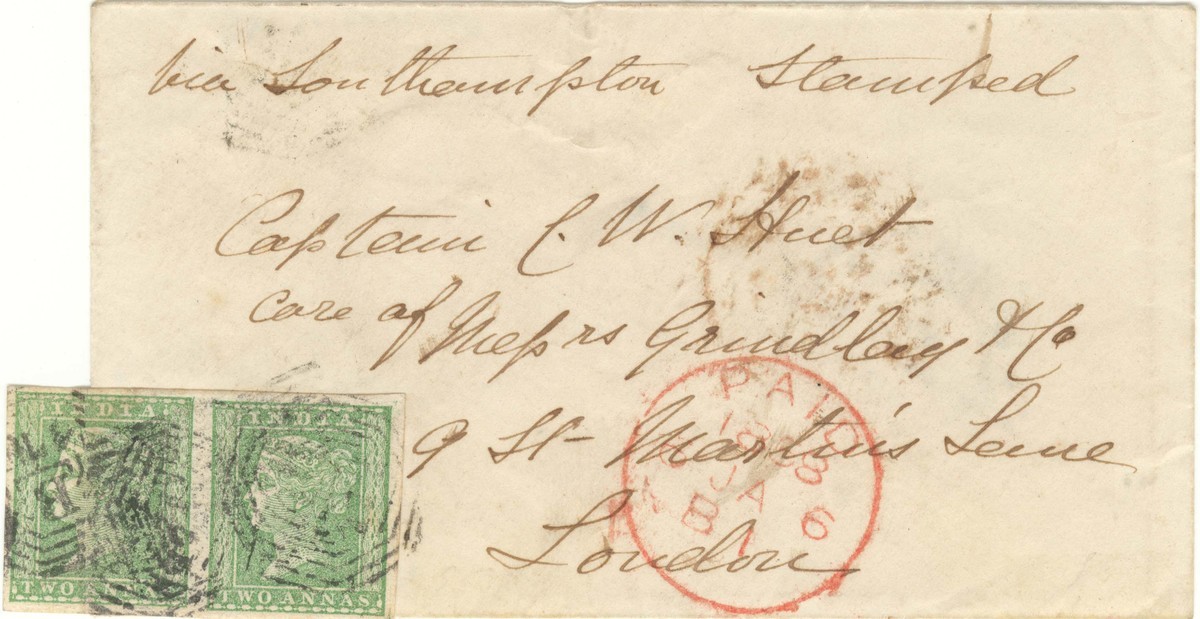 via Southampton Stamped
Captain C. W. Huet
care of Messrs Grindlay & Co
9 St Martin's Lane
London
PAID
18 JA
1856
INDIA
TWO ANNAS
INDIA
TWO ANNAS